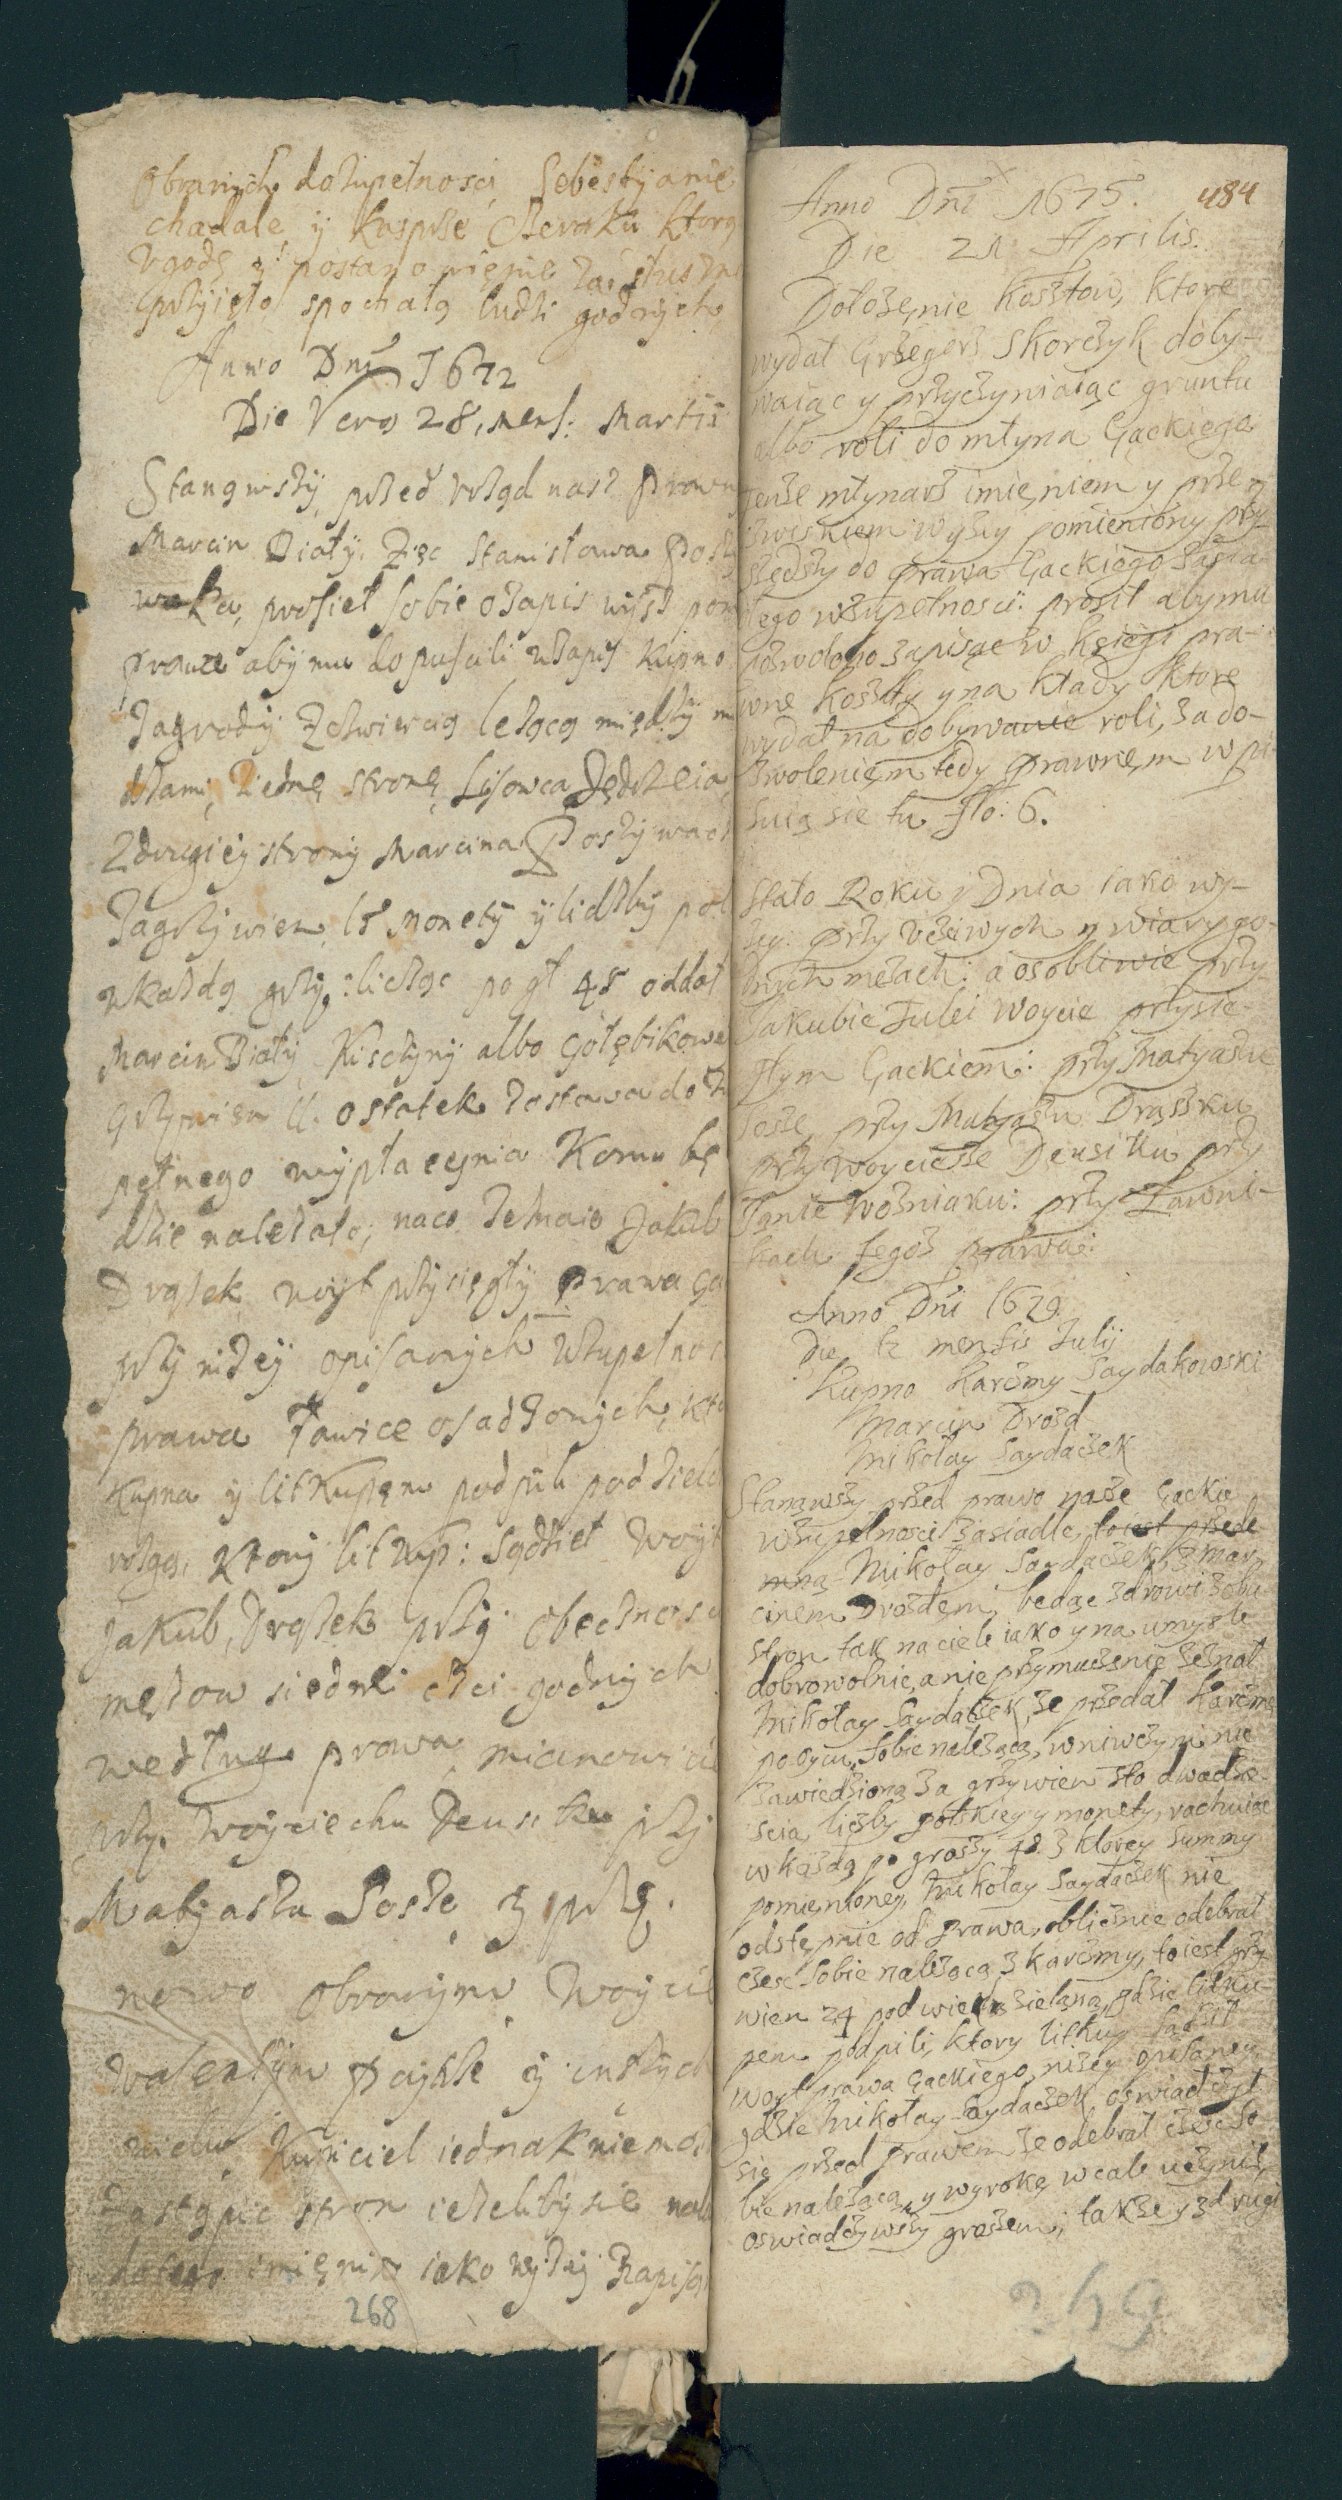 obranich do zupełnosci Sebestyanie
chadale y kasprze Cberoku ktorą
Vgodę y postanowięnie za słuszne
przyięło spochałą ludzi godnych
Anno Dnī 1672
Die Vero 28, mens: Martii
Stanąwszy przed vrząd nasz prawny
Marcin Biały, Zięc Stanisława Posz
waka, prosieł sobie o zapis wysz pom
prawa aby mu dopuscili wzapis kupno
Zagrody leżącą między m
dzami, ziednę stronę, Lisowca Jędrzeia
Zdrugiey strony Marcina Poszywacz
Za grzywien 15 monety y lidzby pol
wkażdą grzy: licząc po gł 48 oddał
Marcin Biały Kisczyny albo Gołębikowe
Grzywien 11. ostatek zostawa do zu
pełnego wypłacęnia Komu bę
dzie należało; naco zeznaio Jakub
Drązek woyt przysięgły prawa Ga
przy niżey opisanych wzupełno
prawa Ławice osadzonych, kto
kupna y litkupęm podpili pod ziel
rozgą, ktory litkup: sądzieł woyt
Jakub, Drązek przy obecznosc
mężow siedmi czci godnych
według prawa, mianowicie
przy. Woyciechu Deusitku przy
Matyaszu Sosze, 3 przy.
nowo obranym Woycie
walentym Paykle y inszych
wielu, Kupiciel iednak nie ma
Zastąpic stron ieżeliby sie nal
do tego imięnia iako wyżey Zapisa
268
484
Anno Dnī 1675.
Die 21 Aprilis.
Dołożęnie kosztow, ktore
wydał Grzegorz Skorczyk doby-
waiąc y przyczyniaiąc gruntu
albo roli do młyna Gackiego
Tenze młynarz imięniem y prze-
zwiskiem wyszy pomieniony przy-
szędszy do prawa Gackiego Zasia-
łego wzupełnosci: prosił aby mu
pozwolono zapisac w księgi pra-
wne koszty y na kłady ktore
wydał na dobywanie roli, za do-
zwolenięm tedy prawnęm wpi-
suią sie tu fło: 6.
Stało Roku y Dnia iako wy-
szey: przy vczciwych y wiary go-
dnych mezach: a osobliwie przy
Jakubie Zulei Woycie przysię-
głym Gackiem: przy Matyaszu
Sosze, przy Matyaszu Drązku
przy Woyciesze Deusitku przy
Janie Wozniaku: przy Ławni-
kach tegoz prawa:
Anno Dnī 1679.
Die 12 mensis Julij
Kupno Karczmy Saydakowski
Marcin Drozd
Mikołay Saydaczek
Stanąwszy przed prawo nasze Gackie
wzupełnosci zasiadłe, to iest przede
mną Mikołay Saydaczek, z Mar
cinem Drozdęm, będąc zdrowi z obu
stron tak na ciele iako y na umyśle
dobrowolnie, a nie przymuszęnie zeznał
Mikołay Saydaczek, ze przedał Karczmę
po oycu, sobie należącą, w niwczym nie
zawiedzioną za grzywien sto dwadzie-
scia, liczby polskiey y monety, rachuiąc
w każdą po groszy 48. Z ktorey summy
pomienioney, Mikołay Saydaczek nie
odstępnie od prawa, oblicznie odebrał
częsc sobie należącą z Karczmy, to iest grzy
wien 24 pod wiechą zieloną, gdzie litku-
pem podpili, ktory litkup sądził
woyt prawa Gackiego, nizey opisaney
gdzie Mikołay Saydaczek oswiadczył
się przed prawem ze odebrał częsc so
bie należącą, y wyrokę wcale uczynił,
oswiadczywszy groszem; takze y z drugi
269